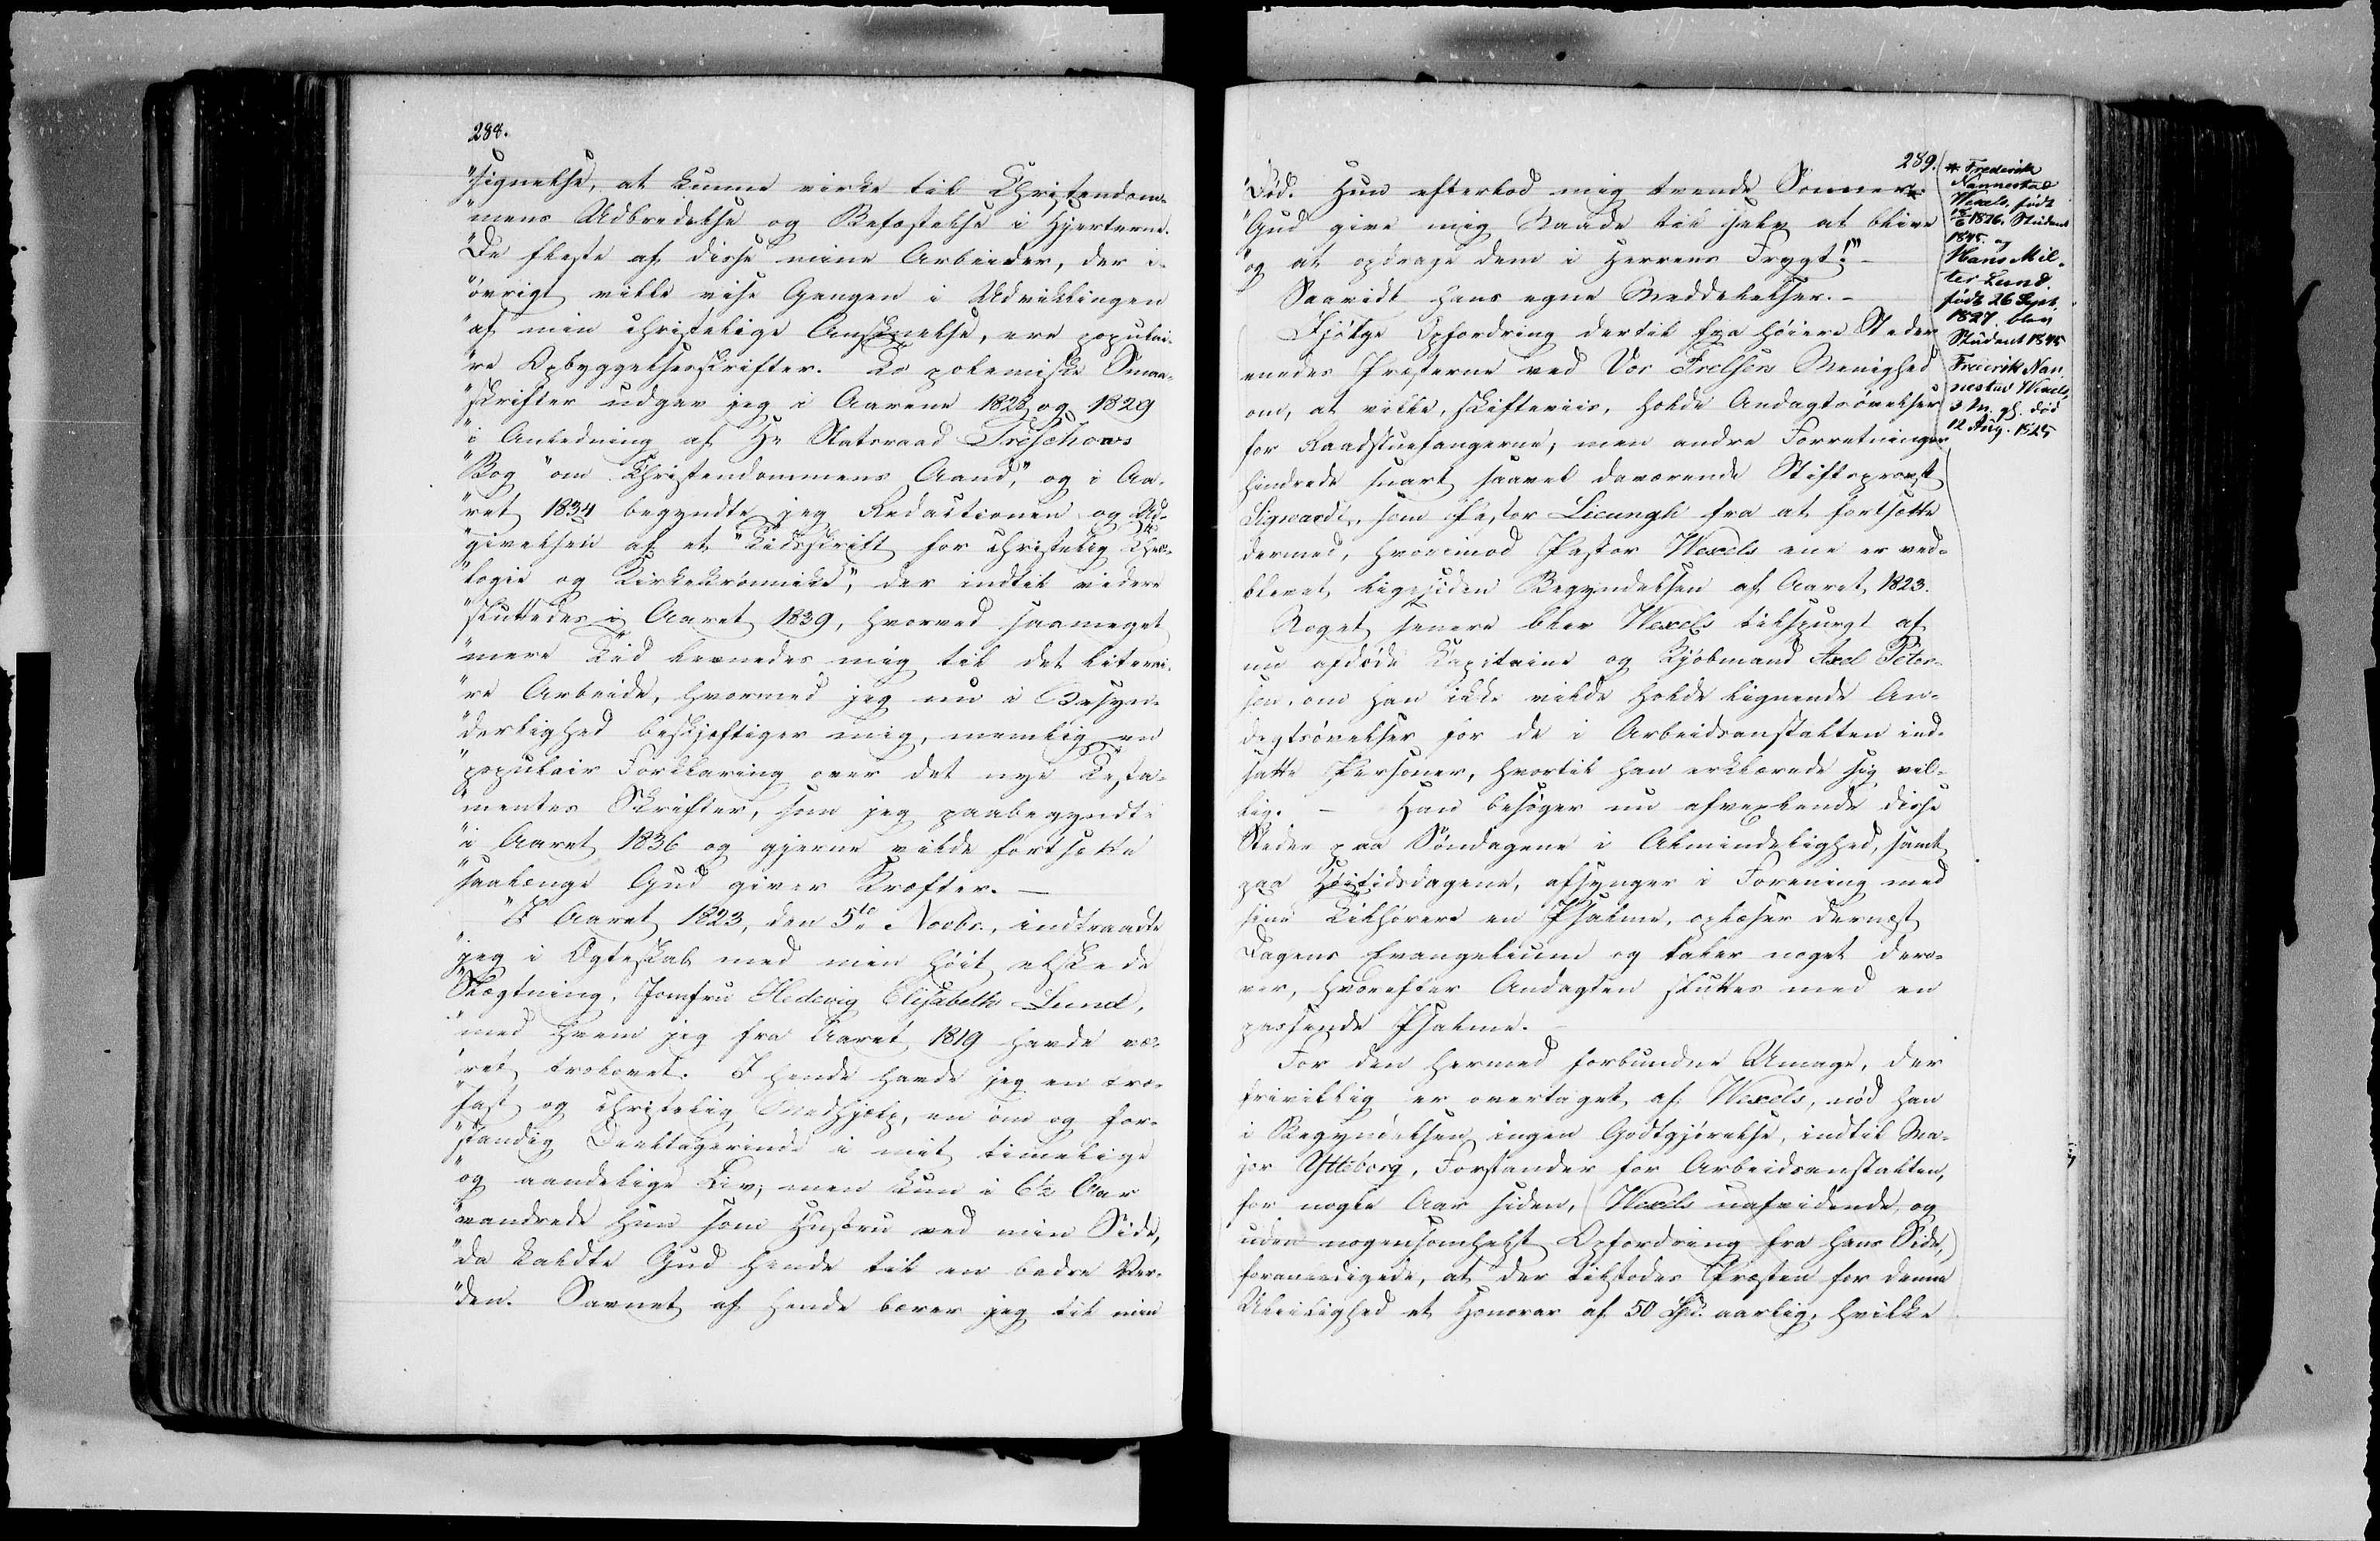 288.
"signelse, at kunne virke til Christendom-
"mens Udbredelse og Befæstelse i Hjerterne.
"De fleste af disse mine Arbeider, der i-
"øvrigt ville vise Gangen i Udviklingen
"af min christelige Anskuelse, ere populai-
"re Opbyggelsesskrifter. To polemiske Smaa-
"skrifter udgav jeg i Aarene 1828 og 1829
"i Anledning af Hr Statsraad Treschows
"Bog "om Christendommens Aand," og i Aa-
"ret 1834 begyndte jeg Redactionen og Ud-
"givelsen af et "Tidsskrift for christelig Theo-
"logie og Kirkekrønnike", der indtil videre
"sluttedes i Aaret 1839, hvorved saameget
"mere Tid levnedes mig til det literai-
"re Arbeide, hvormed jeg nu i Besyn-
"derlighed beskjeftiger mig, nemlig en
"populair Forklaring over det nye Testa-
"mentes Skrifter, som jeg paabegyndte
"i Aaret 1836 og gjerne vilde fortsætte
"saalænge Gud giver Kræfter. —
"I Aaret 1823, den 5te Novbr., indtraadte
"jeg i Ægteskab med min høit elskede
"Slægtning, Jomfru Hedevig Elisabeth Lund,
"med hvem jeg fra Aaret 1819 havde væ-
"ret trolovet. I hende havde jeg en tro-
"fast og christelig Medhjælp, en øm og for-
"standig Deeltagerinde i mit timelige
"og aandelige Liv; men kun i 6½ Aar
"vandrede hun som Hustru ved min Side,
"da kaldte Gud hende til en bedre Ver-
"den. Savnet af hende bærer jeg til min
289.
"Død. Hun efterlod mig tvende Sønner.*
"Gud give mig Naade til selv at blive
"og at opdrage dem i Herrens Frygt!"—
Saavidt hans egne Meddelelser. —
Ifølge Opfordring dertil fra høiere Steder
enedes Præsterne ved Vor Frelsers Menighed
om, at ville, skifteviis, holde Andagtsøvelser
for Raadstuefangerne; men andre Forretninger
hindrede snart saavel daværende Stiftsprovst
Sigwardt, som Pastor Lieungh fra at fortsætte
dermed, hvorimod Pastor Wexels ene er ved-
blevet, lige siden Begyndelsen af Aaret 1823.
Noget senere blev Wexels tilspurgt af
nu afdøde Capitaine og Kjøbmand Axel Peter-
sen, om han ikke vilde holde lignende An-
degtsøvelser for de i Arbeidsanstalten ind-
satte Personer, hvortil han erklærede sig vil-
lig. — Han besøger nu afvexlende disse
Steder paa Søndagene i Almindelighed, samt
paa Høitidsdagene, afsynger i Forening med
sine Tilhørere en Psalme, oplæser dernæst
Dagens Evangelium og taler noget dero-
ver, hvorefter Andagten sluttes med en
passende Psalme. —
For den hermed forbundne Umage, der
frivillig er overtaget af Wexels, nød han
i Begyndelsen ingen Godtgjørelse, indtil Ma-
jor Ytteborg, Forstander for Arbeidsanstalten,
for nogle Aar siden, (Wexels uafvidende, og
uden nogensomhelst Opfordring fra hans Side,)
foranledigede, at der tilstodes Præsten for denne
Uleilighed et Honorar af 50 Spd. aarlig, hvilke
* Frederik
Nannestad
Wexels, født
1826. Student
1845. og
Hans Mil-
ter Lund.
født 26 Sept.
1827. blev
Student 1845
Frederik Nan-
nestad Wexels,
3 M. gl. død
12 Aug. 1825